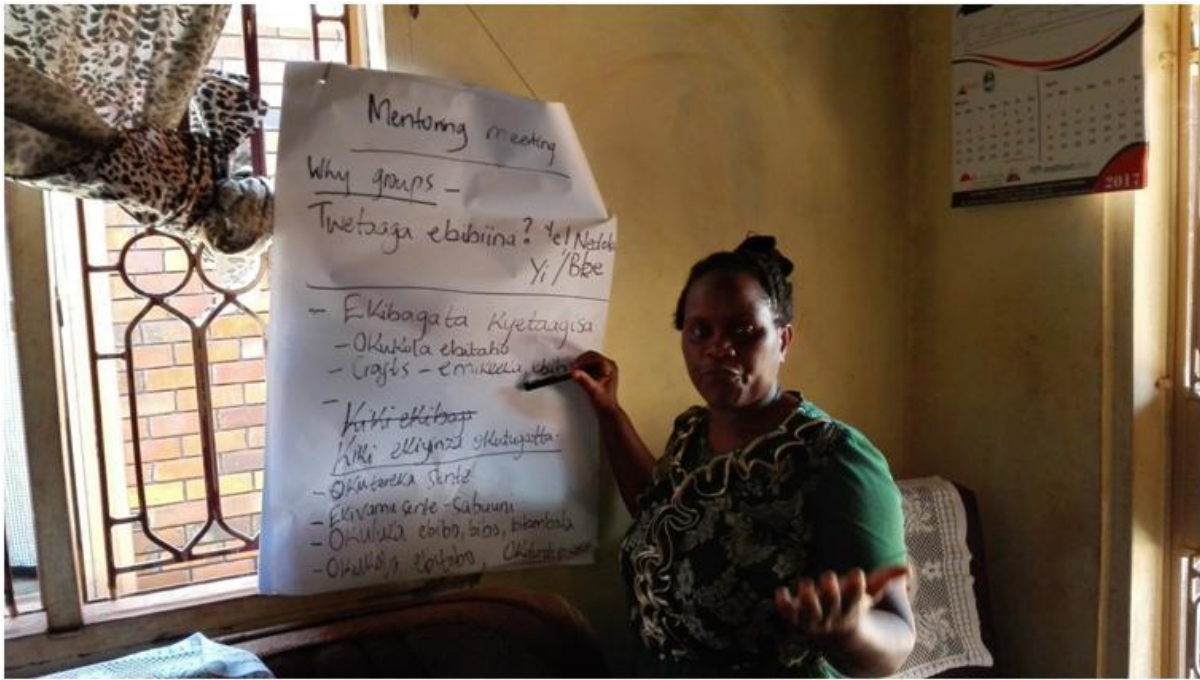 Mentoring meeting
Why groups -
Twetaaga ebibiina? Ye/Nedda
Yi/Bbe
- Ekibagata kyetaagisa
- Okukola ebitabo
- Crafts - emikeeka, ebibo
-
Kiki ekibag
Kiki ekiyinza okutugatta.
- Okutereka Sente
- Ekivamu sente - Sabuuni
- Okuluka ebibo, bibo, bitambala
- Okukola ebitabo,
2017